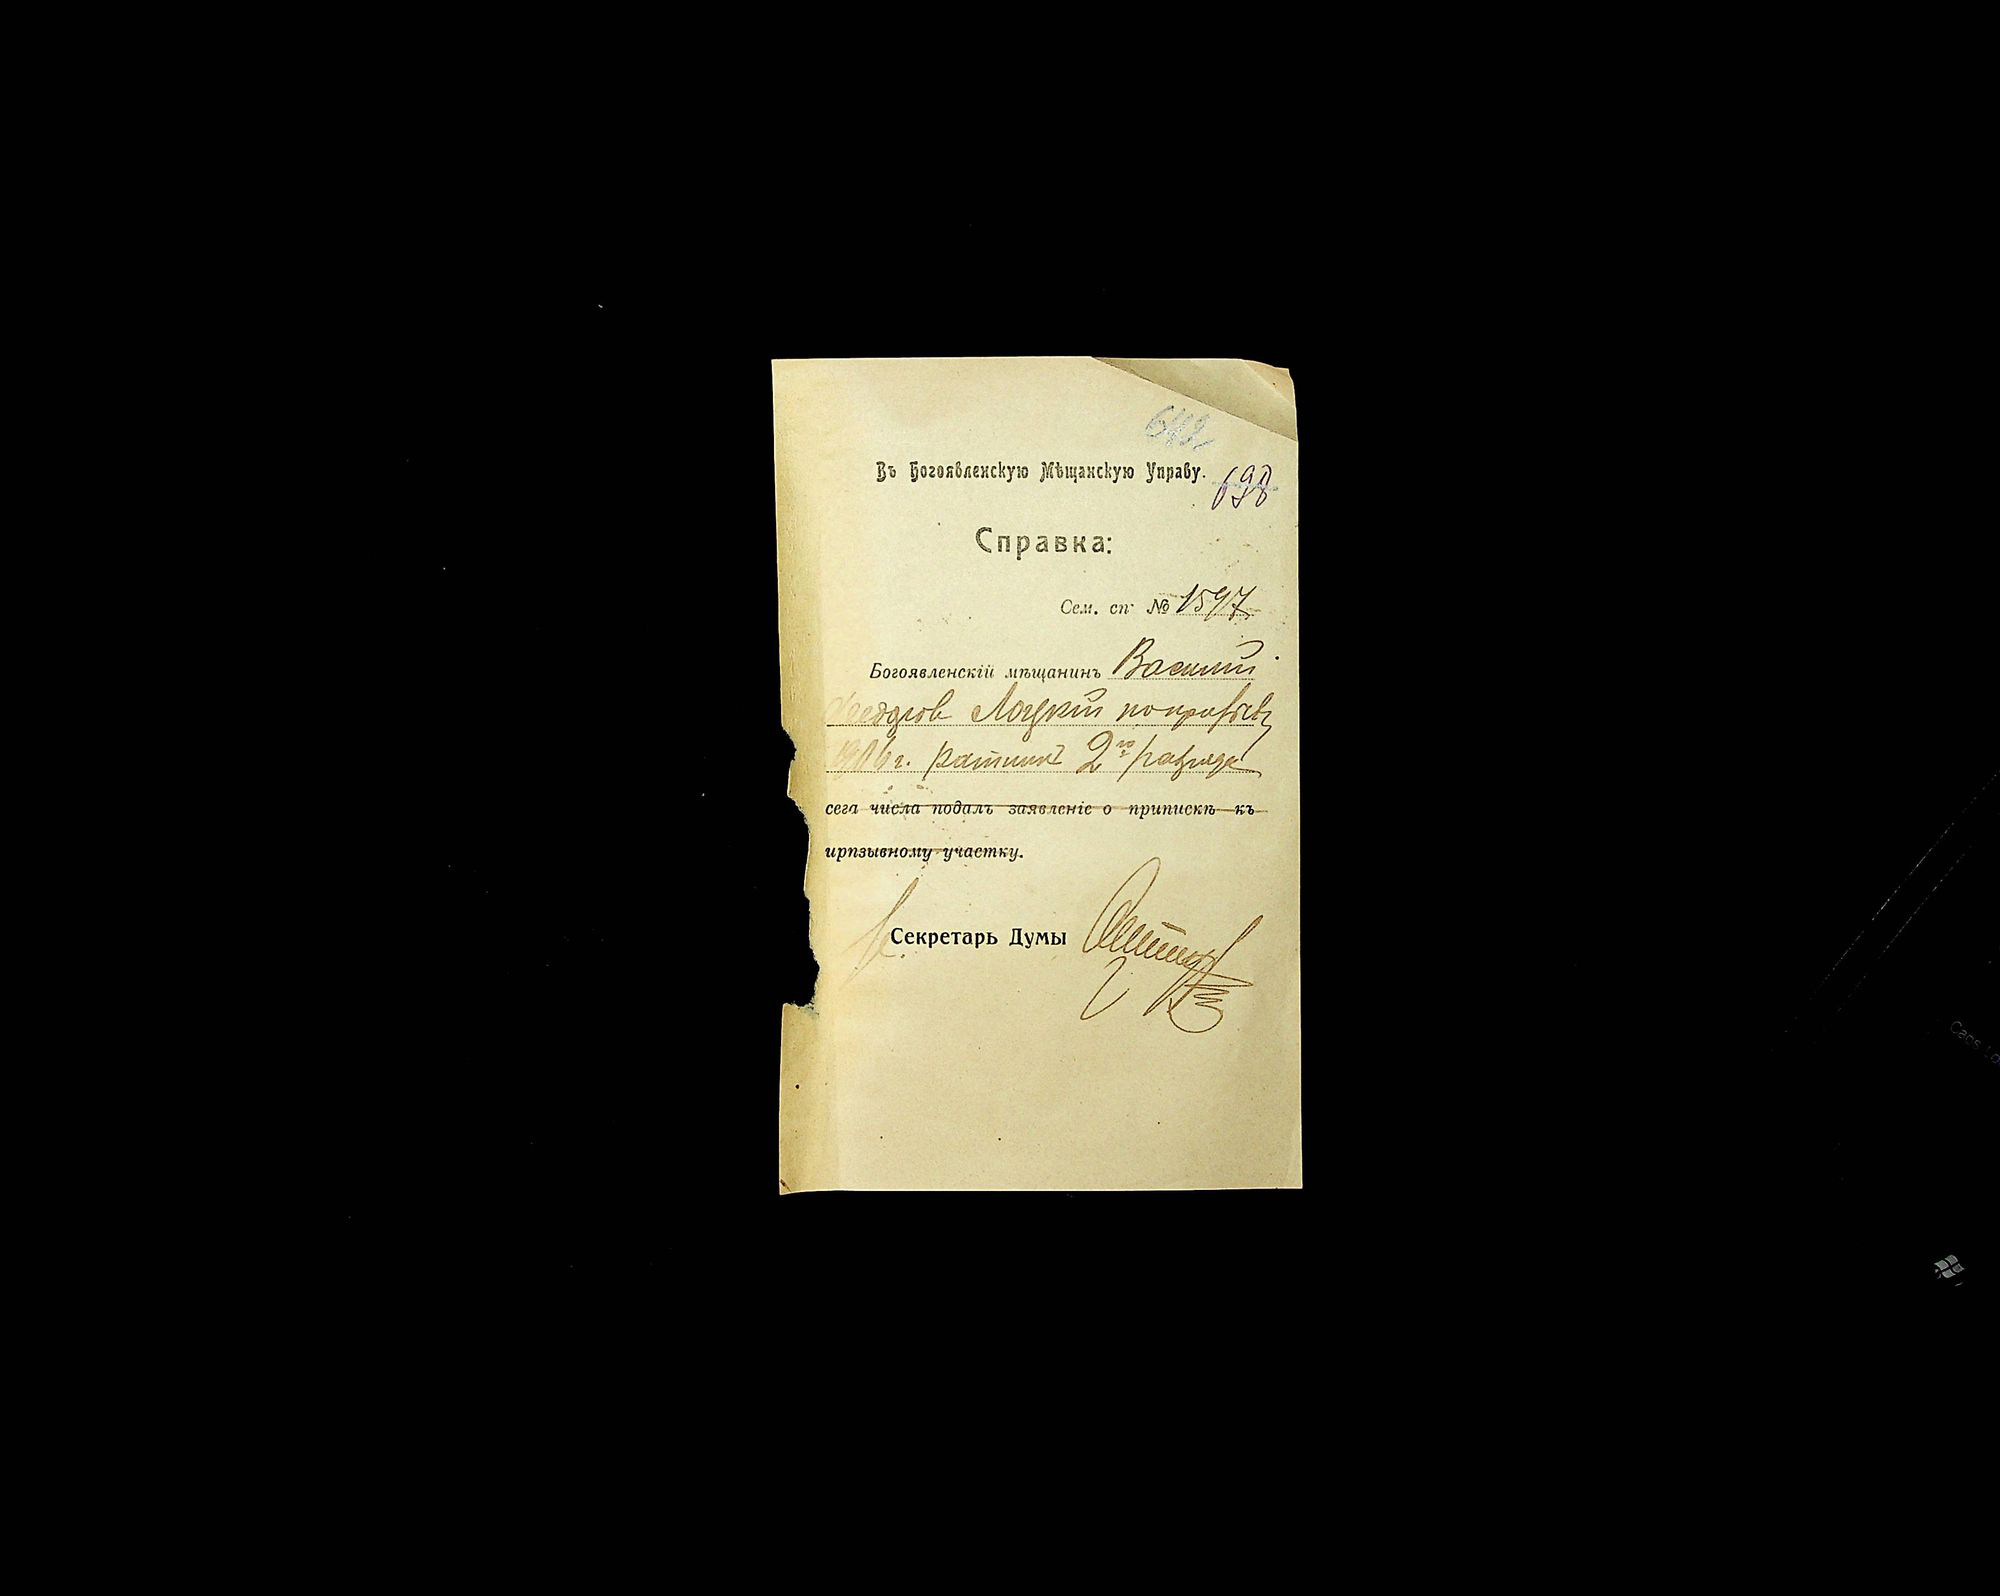 642
Въ Богоявленскую Мѣщанскую Управу.
698
Справка:
Сем. сп. № 1597
Богоявленскій мѣщанинъ Василий
Феодоров Лоцкій по призыву
1906 г. ратникъ 2го разряда
сега числа подалъ заявленіе о припискѣ къ
ирпзывному участку.
Секретарь Думы